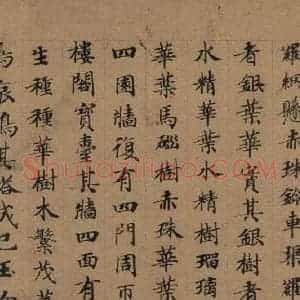 羅網懸赤珠鈴車璖羅
者銀葉華實其銀樹
水精華葉水精樹瑠璃
華葉馬瑙樹赤珠華葉
四園墻復有四門周帀
樓閣寶臺其墻四面有
生種種華樹木繁茂
哀鳴其